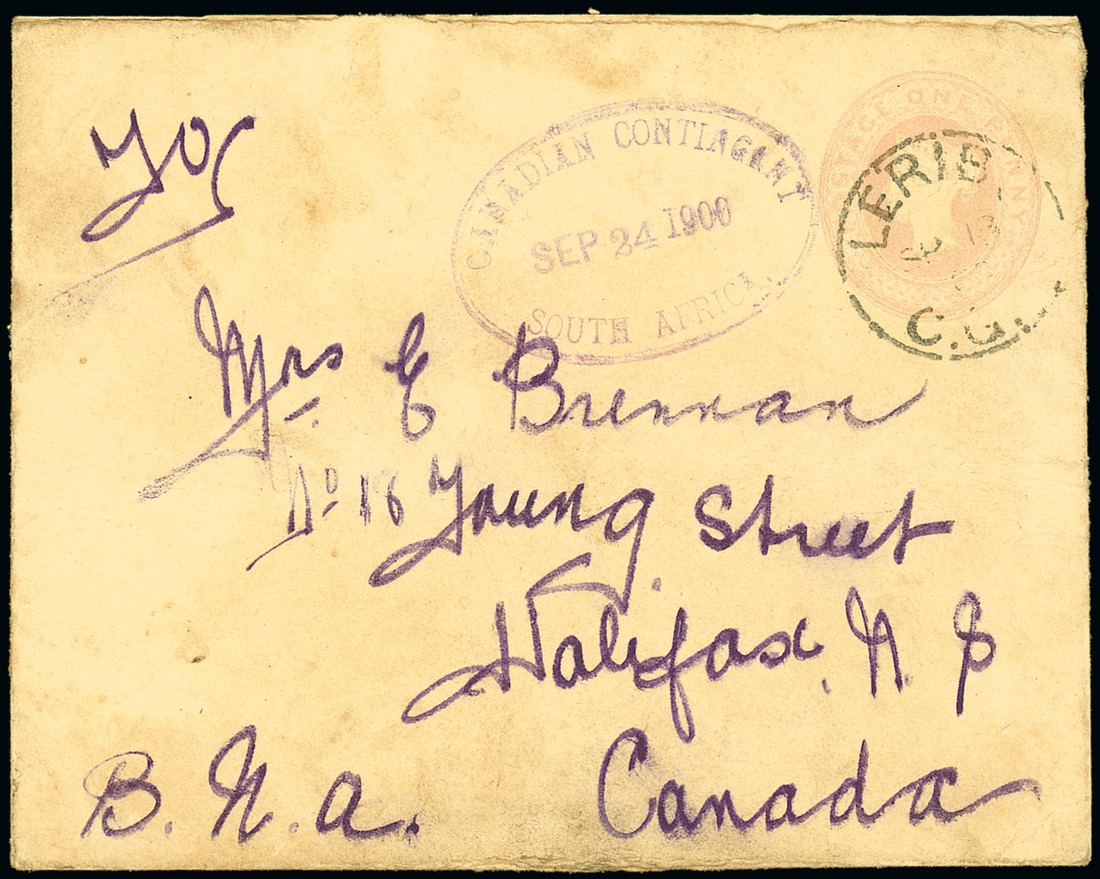 To
CANADIAN CONTINGENT
SEP 24 1900
SOUTH AFRICA.
POSTAGE ONE PENNY
LERIB
C.G.
Mrs E Brennan
No 18 Young Street
Halifax. N. S
B. N. A. Canada